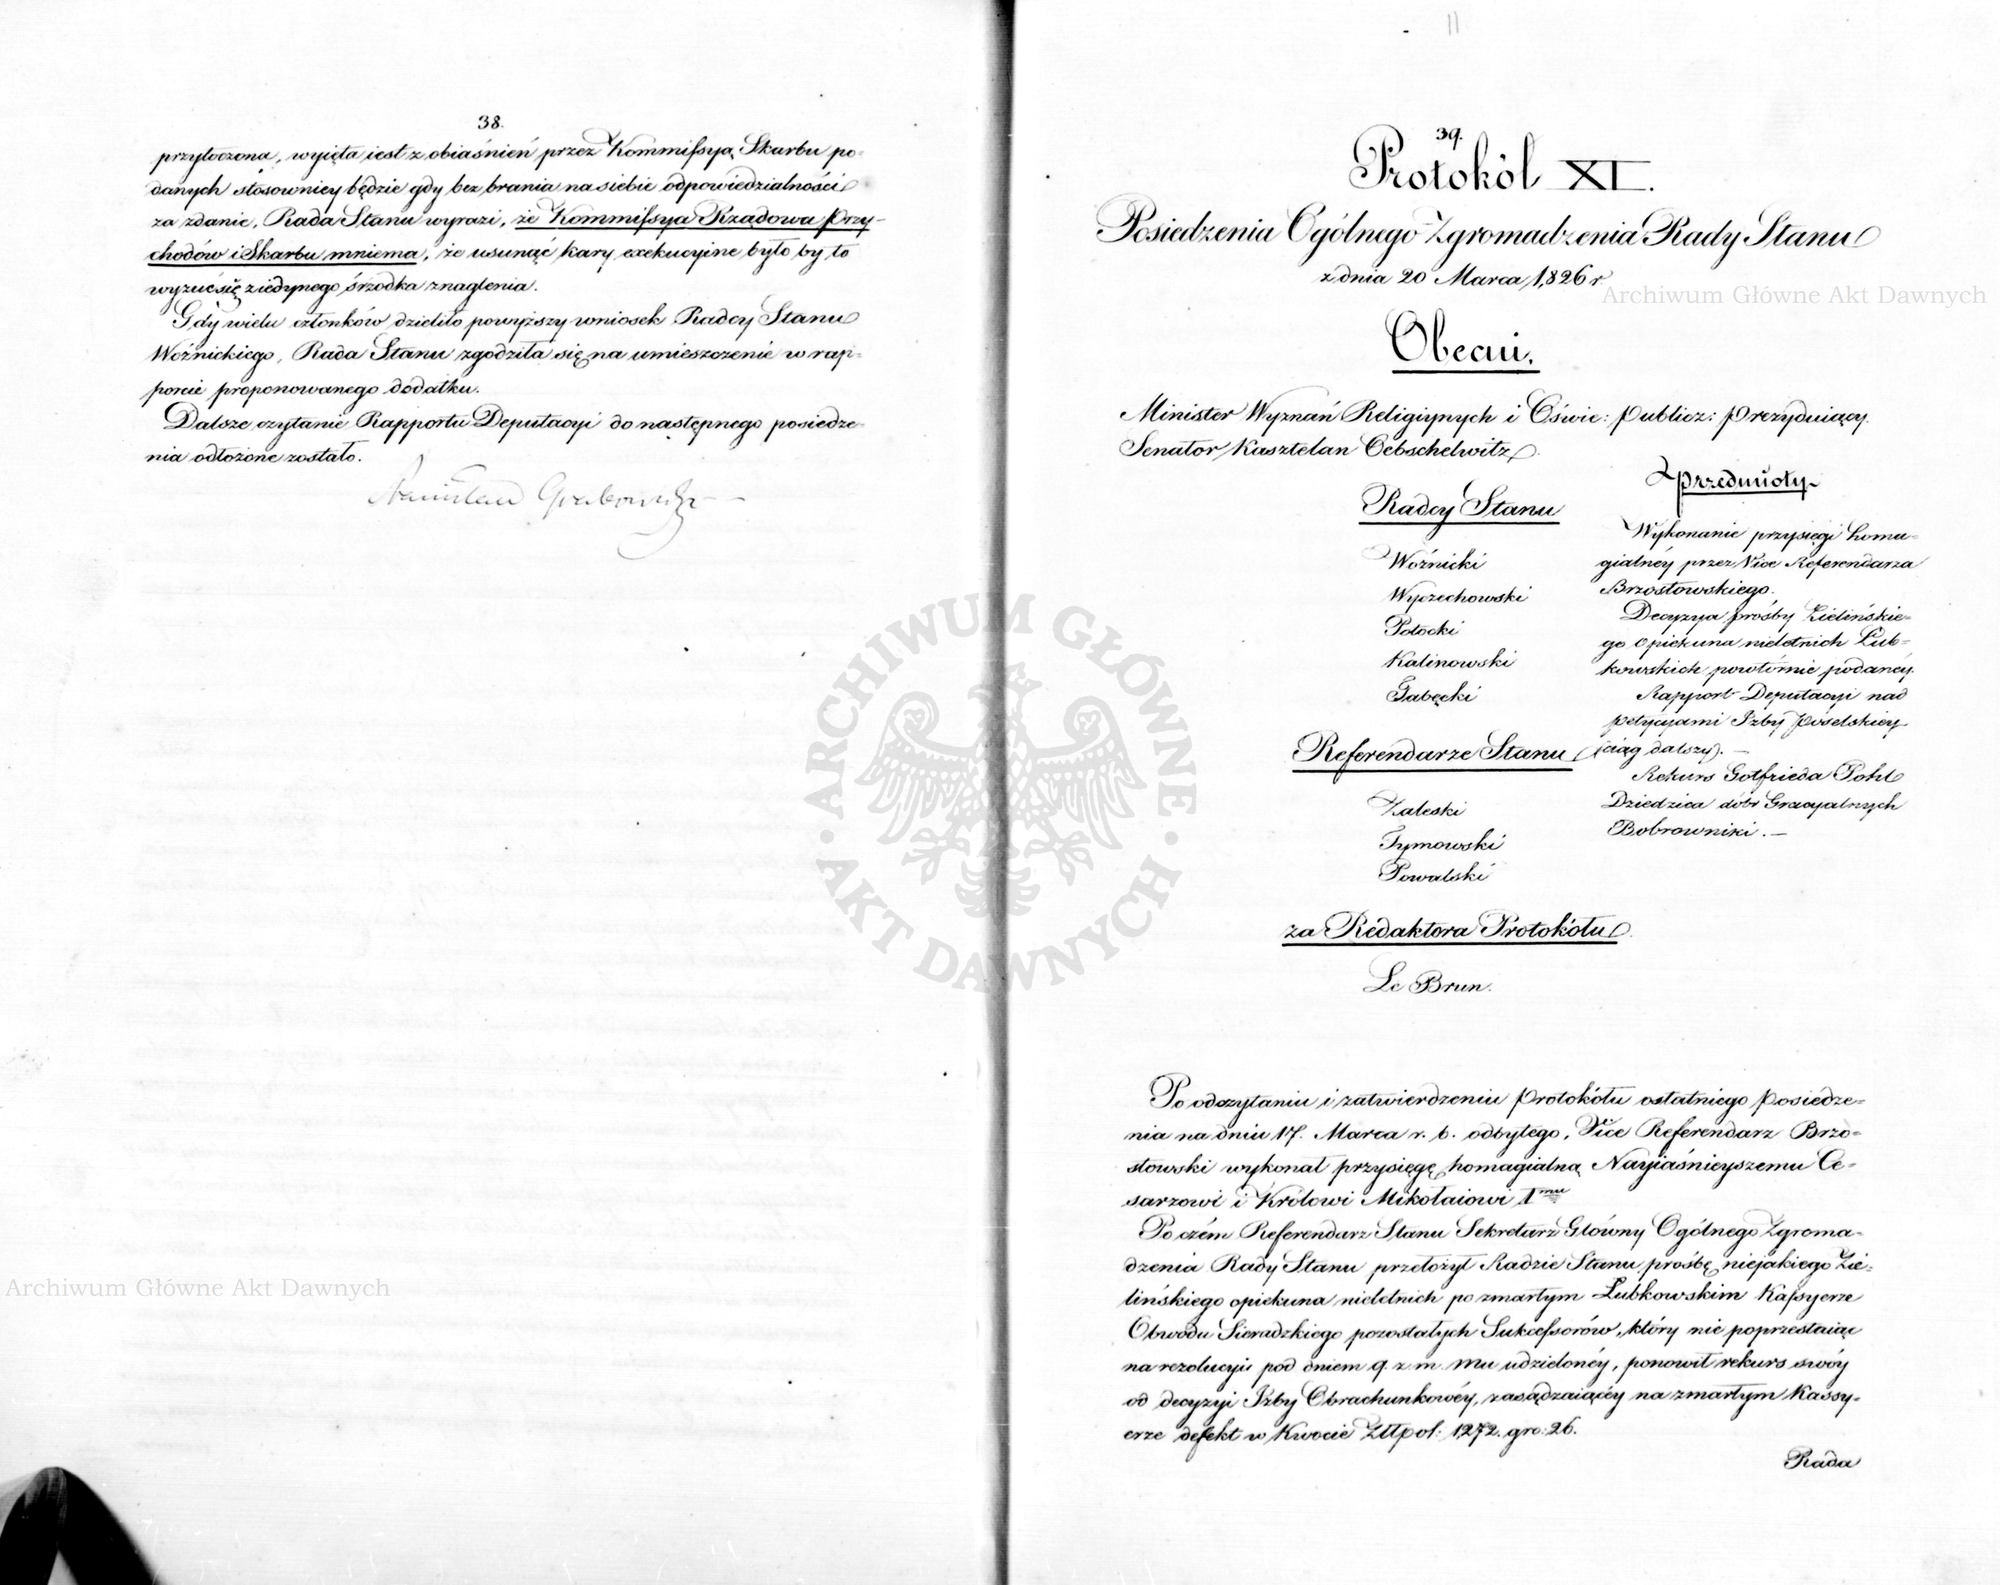 38.
przytoczona, wyięta iest z obiaśnień przez Kommissyą Skarbu po-
danych stósowniey będzie gdy bez brania na siebie odpowiedzialności
za zdanie, Rada Stanu wyrazi, że Kommissya Rządowa Przy-
chodów i Skarbu mniema, że usunąć kary exekucyine było by to
wyzuć się z iedynego śrzodka znaglenia.
Gdy wielu członków dzieliło powyższy wniosek Radcy Stanu
Woźnickiego, Rada Stanu zgodziła się na umieszczenie w rap-
porcie proponowanego dodatku.
Dalsze czytanie Rapportu Deputacyi do następnego posiedze-
nia odłożone zostało.
Stanisław Grabowski
11
39.
Protokół XI.
Posiedzenia Ogólnego Zgromadzenia Rady Stanu
z dnia 20 Marca 1826 r.
Obecni.
Minister Wyznań Religiynych i Oświe: Publicz: Prezyduiący.
Senator Kasztelan Oebschelwitz.
Radcy Stanu
Woźnicki
Wyczechowski
Potocki
Kalinowski
Gąbęcki
Referendarze Stanu
Zaleski
Tymowski
Powalski
za Redaktora Protokółu
Le Brun.
Przedmioty
Wykonanie przysięgi homa-
gialnéy przez Vice Referendarza
Brzostowskiego.
Decyzya prośby Zielińskie-
go opiekuna nieletnich Łub-
kowskich powtórnie podanéy.
Rapport Deputacyi nad
petycyami Izby Poselskiéy
(ciąg dalszy). —
Rekurs Gotfrieda Pohl
Dziedzica dóbr Gracyalnych
Bobrowniki. —
Po odczytaniu i zatwierdzeniu Protokółu ostatniego Posiedze-
nia na dniu 17. Marca r. b. odbytego, Vice Referendarz Brzo-
stowski wykonał przysięgę homagialną Nayiaśnieyszemu Ce-
sarzowi i Królowi Mikołaiowi Imu
Po czém Referendarz Stanu Sekretarz Główny Ogólnego Zgroma-
dzenia Rady Stanu przełożył Radzie Stanu prośbę niejakiego Zie-
lińskiego opiekuna nieletnich po zmarłym Łubkowskim Kassyerze
Obwodu Sieradzkiego pozostałych Sukcessorów, który nie poprzestaiąc
na rezolucyi pod dniem 9. z. m. mu udzielonéy, ponowił rekurs swóy
od decyzyi Izby Obrachunkowéy, zasądzaiącéy na zmarłym Kassy-
erze defekt w kwocie Złłpol: 1,272. gro: 26.
Rada
Archiwum Główne Akt Dawnych
Archiwum Główne Akt Dawnych
ARCHIWUM GŁÓWNE
AKT DAWNYCH